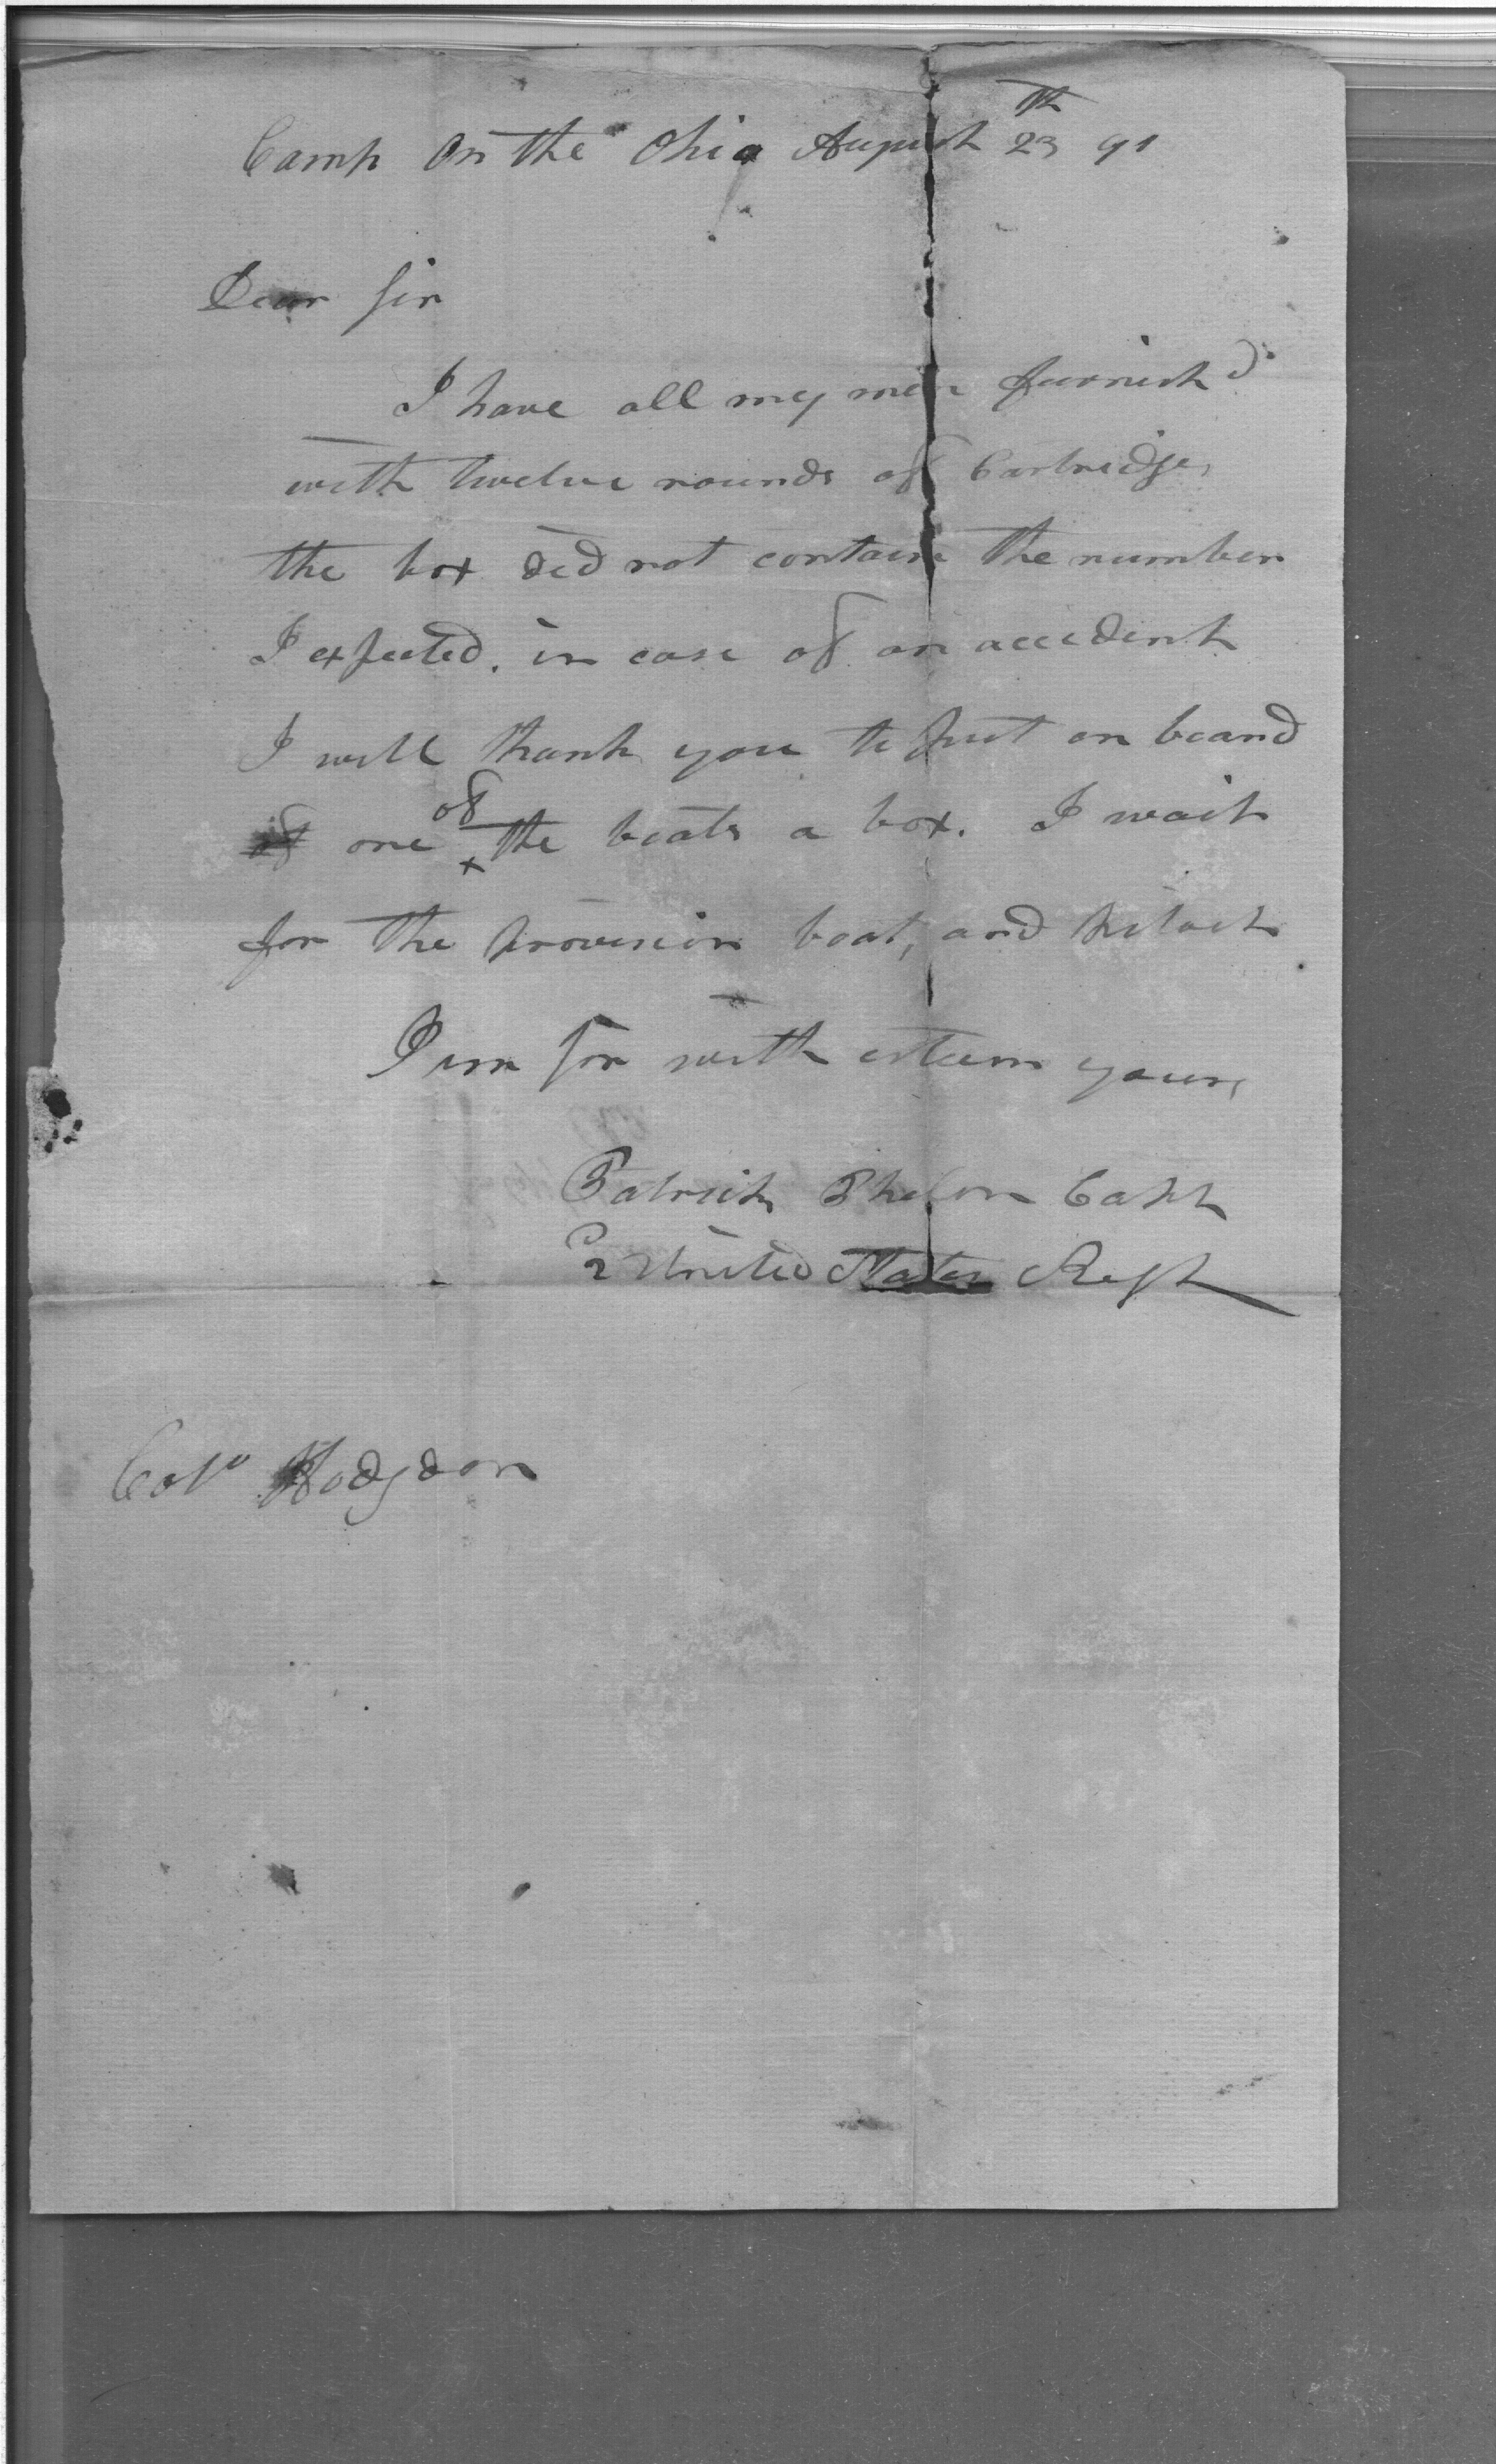 Camp on the Ohio August 23th 91
Dear Sir
I have all my men furnishd
with twelve rounds of Cartridges
the box did not contain the number
I expected. in case of an accident
I will thank you to put on board
of one of the boats a box. I wait
for the provision boat, and pilot
I am Sir with esteem yours
Patrick Phelon Capt
2 United States Regt
Colo Hodgdon